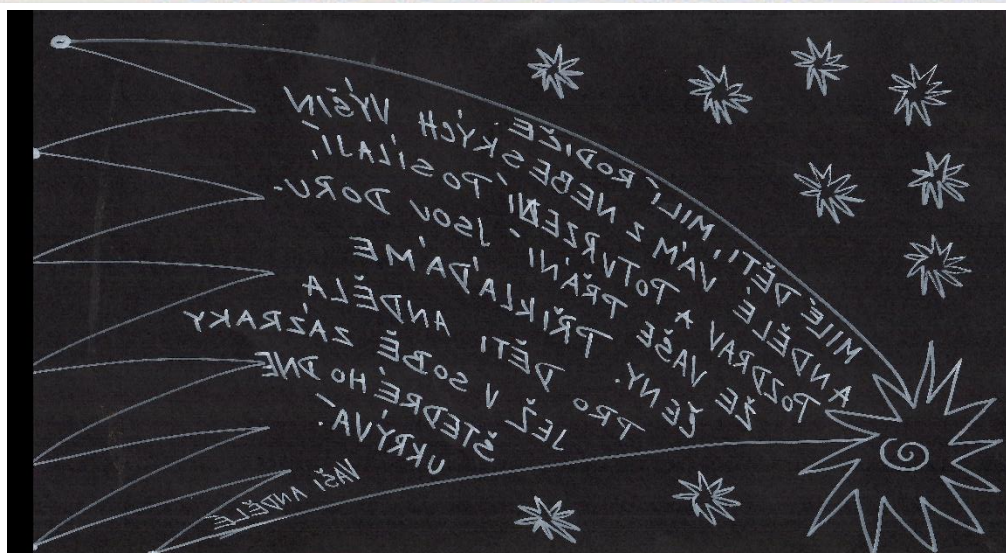 MILÉ DĚTI, MILÍ RODIČE.
ANDĚLÉ VÁM Z NEBESKÝCH VÝŠIN
POZDRAV A POTVRZENÍ POSÍLAJÍ,
ŽE VAŠE PŘÁNÍ JSOU DORU-
ČENY. PŘIKLÁDÁME
PRO DĚTI ANDĚLA
JEŽ V SOBĚ ZÁZRAKY
ŠTEDRÉHO DNE
UKRÝVÁ.
VAŠI ANDĚLÉ